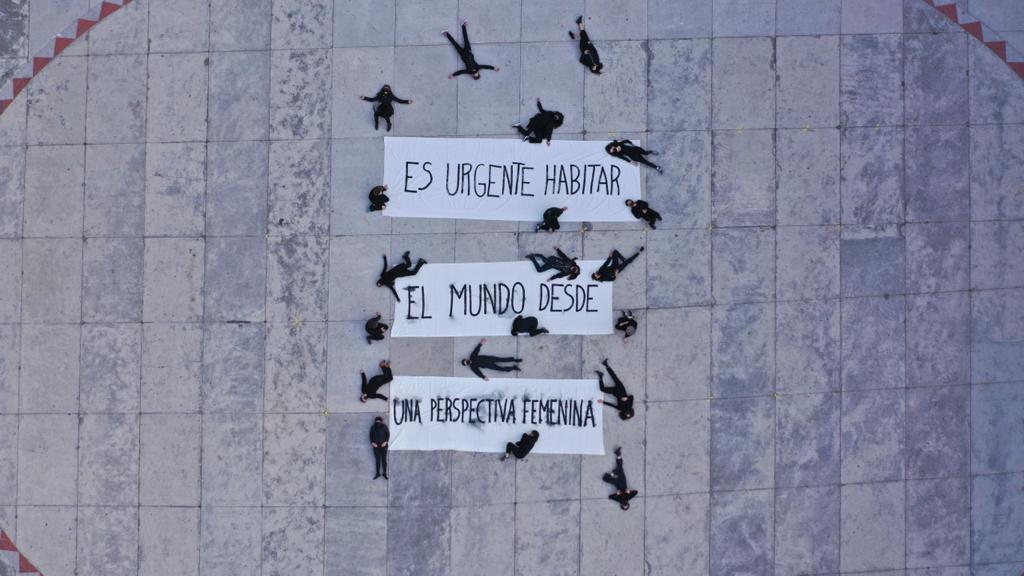 ES URGENTE HABITAR
EL MUNDO DESDE
UNA PERSPECTIVA FEMENINA